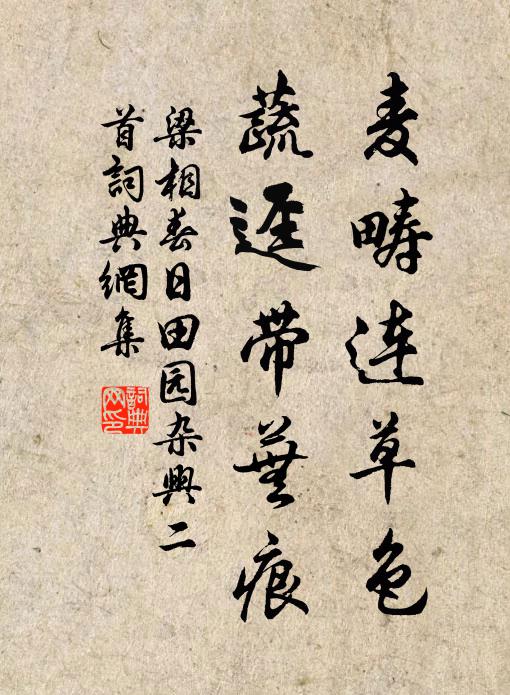 麦畴连草色
蔬迳带芜痕
梁相春日田园杂興二
首詞典網集
詞典網印